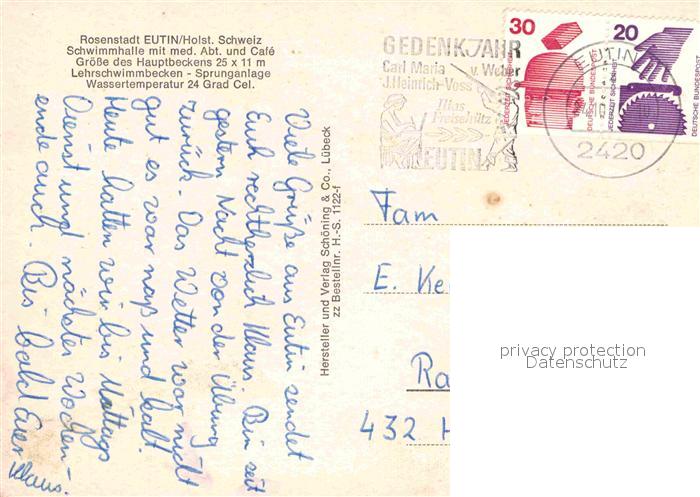 Rosenstadt EUTIN/Holst. Schweiz
Schwimmhalle mit med. Abt. und Café
Größe des Hauptbeckens 25 x 11 m
Lehrschwimmbecken - Sprunganlage
Wassertemperatur 24 Grad Cel.
Viele Grüße aus Eutin sendet
Euch rechtherzlich Klaus. Bin seit
gestern Nacht von der Übung
zurück. Das Wetter war nicht
gut es war naß und kalt.
Heute hatten wir bis Mittags
Dienst und nächstes Wochen-
ende auch. Bis bald Euer
Klaus.
Hersteller und Verlag Schöning & Co., Lübeck
zz Bestellnr. H.-S. 1122-f
GEDENKJAHR
Carl Maria v. Weber
J.Heinrich-Voss
Ilias
Freischütz
EUTIN
30
JEDERZEIT SICHERHEIT
DEUTSCHE BUNDESPOST
20
JEDERZEIT SICHERHEIT
DEUTSCHE BUNDESPOST
EUTIN
2420
Fam
E. Ke
Ra
432 H
privacy protection
Datenschutz